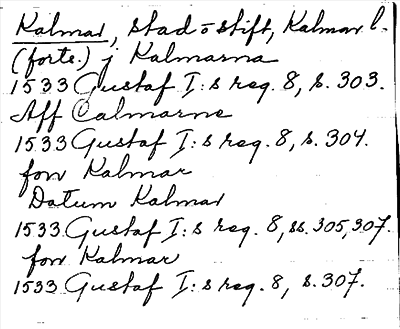 Kalmar, stad o stift, Kalmar l.
(forts.) j Kalmarna
1533 Gustaf I:s reg. 8, s. 303.
Aff Calmarne
1533 Gustaf I:s reg. 8, s. 304.
fon Kalmar
Datum Kalmar
1533 Gustaf I:s reg. 8, ss. 305, 307.
fon Kalmar
1533 Gustaf I:s reg. 8, s. 307.